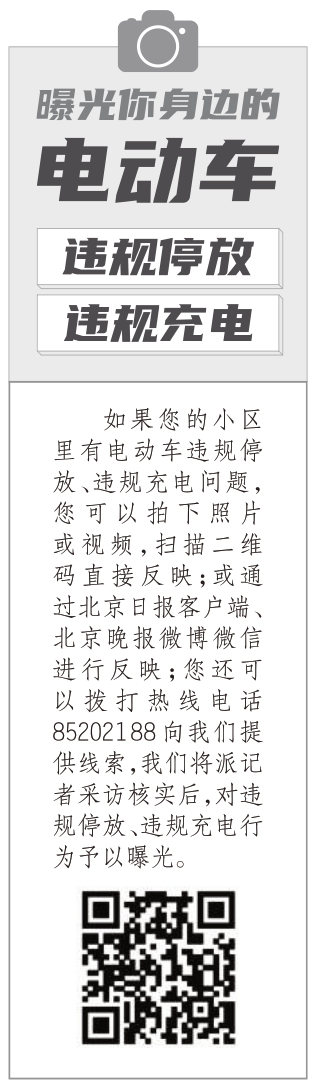 曝光你身边的
电动车
违规停放
违规充电
如果您的小区
里有电动车违规停
放、违规充电问题,
您可以拍下照片
或视频,扫描二维
码直接反映;或通
过北京日报客户端、
北京晚报微博微信
进行反映;您还可
以拨打热线电话
85202188向我们提
供线索,我们将派记
者采访核实后,对违
规停放、违规充电行
为予以曝光。